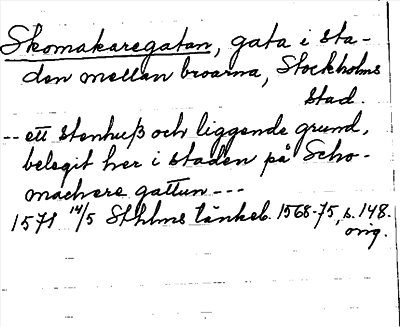 Skomakaregatan, gata i sta-
den mellan broarna, Stockholms
stad.
-- ett stenhuß och liggende grund,
belegit her i staden på Scho-
machere gattun ---
1571 14/5 Sthlms tänkeb. 1568-75, s. 148.
orig.